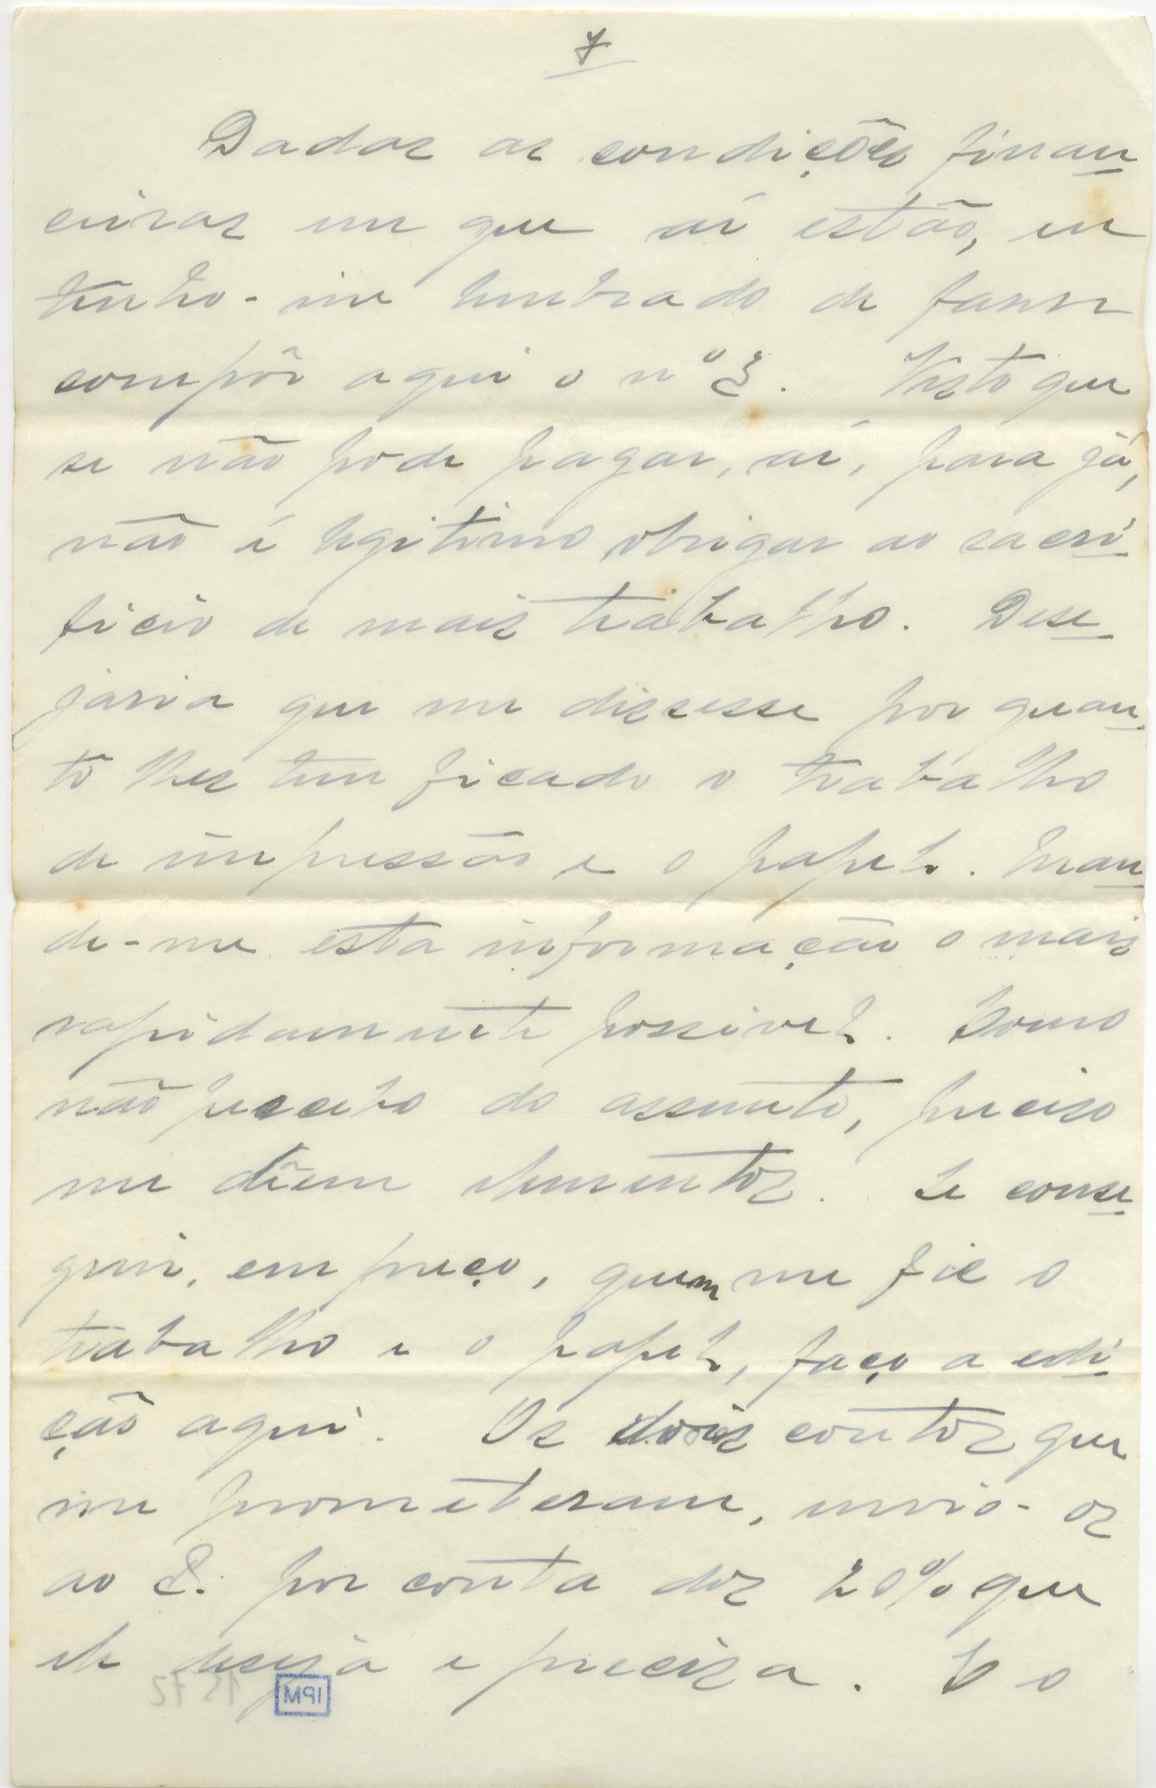 7
Dadas as condições finan
ceiras em que aí estão, eu
tenho-me lembrado de fazer
compôr aqui o nº 3. Visto que
se não pode pagar, aí, para já,
não é legitimo obrigar ao sacri
ficio de mais trabalho. Dese
jaria que me dissesse por quan
to lhes tem ficado o trabalho
de impressão e o papel. Man
de-me esta informação o mais
rapidamente possivel. Como
não percebo do assunto, preciso
me dêem elementos. Se conse
guir, em preço, quem me fie o
trabalho e o papel, faço a edi
ção aqui. Os dois contos que
me prometeram, envio-os
ao S. por conta dos 20% que
ele deseja e precisa. É o
IPM
1572